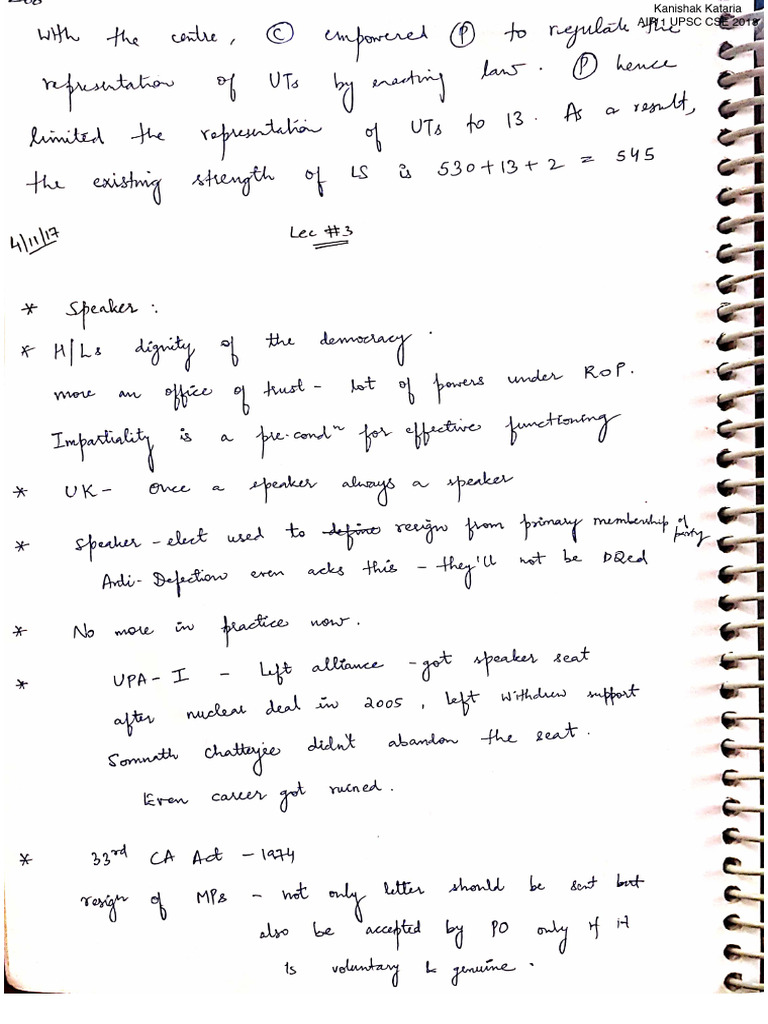 Kanishak Kataria
AIR 1 UPSC CSE 2018
With the centre, Ⓒ empowered Ⓟ to regulate the
representation of UTs by enacting law. Ⓟ hence
limited the representation of UTs to 13. As a result,
the existing strength of LS is 530+13+2 = 545
4/11/17 Lec #3
* Speaker :
* H/Ls dignity of the democracy.
more an office of trust - lot of powers under ROP.
Impartiality is a pre-condⁿ for effective functioning
* UK - Once a speaker always a speaker
* Speaker-elect used to define resign from primary membership of party
Anti-Defection even acks this - they'll not be DQed
* No more in practice now.
* UPA-I - Left alliance - got speaker seat
after nuclear deal in 2005, left withdrew support
Somnath Chatterjee didn't abandon the seat.
Even career got ruined.
* 33rd CA Act - 1974
resign of MPs - not only letter should be sent but
also be accepted by PO only if it
is voluntary & genuine.